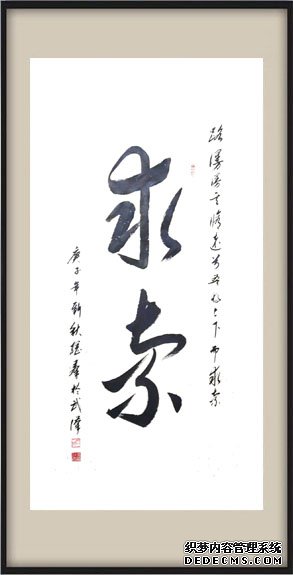 路漫漫其修远兮吾将上下而求索
求索
庚子年新秋继群於武漢
织梦内容管理系统
DEDECMS.COM